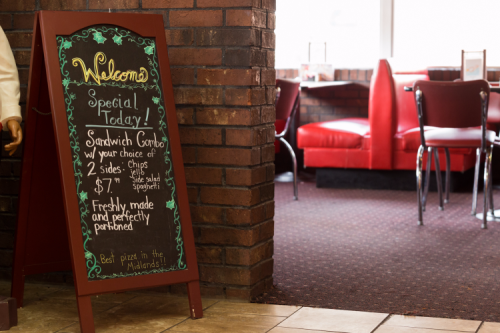 Welcome
Special
Today!
Sandwich Combo
w/ your choice of
2 sides - Chips
Jello
Side salad
spaghetti
$7"
Freshly made
and perfectly
portioned
Best pizza in the
Midlands!!